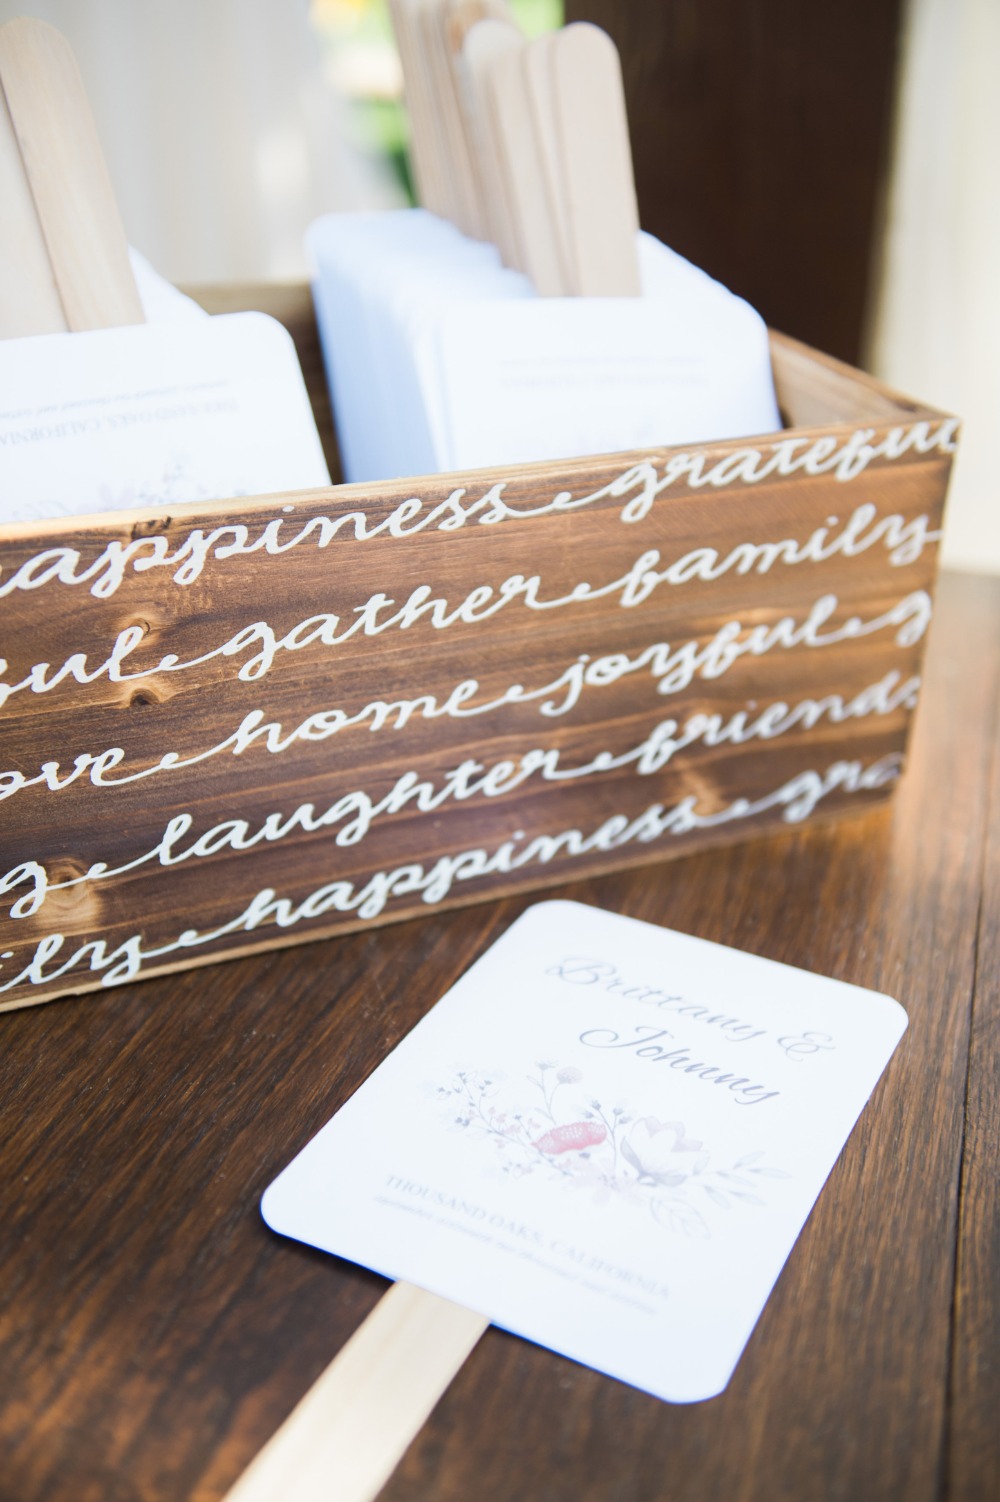 THOUSAND OAKS, CALIFORNIA
appiness grateful
ful gather family
ove home joyful g
g laughter friends
ily happiness gra
Brittany &
Johnny
THOUSAND OAKS, CALIFORNIA